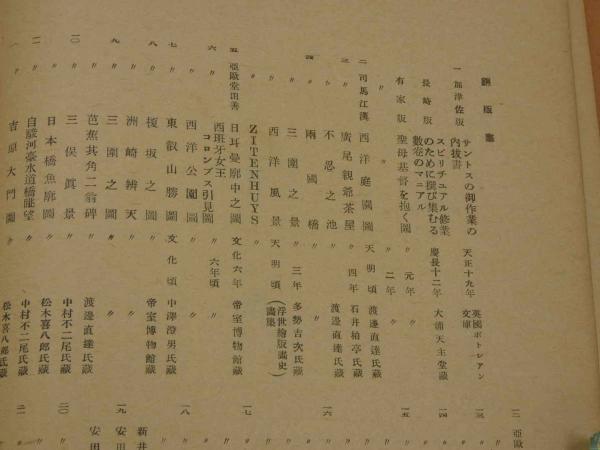 一二 亞歐
銅版畫
一 加津佐版 サントスの御作業の内抜書 天正十九年 英國ボドレアン文庫 一三
長崎版 スピリチュアル修業のために撰び集むる數卷のマニアル 慶長十二年 大浦天主堂藏 一四
有家版 聖母基督を抱く圖 〃 元年 〃 一五
〃 二年 〃
二 司馬江漢 西洋庭園圖 天明頃 渡邊直達氏藏 〃
三 〃 廣尾親爺茶屋 〃 四年 石井柏亭氏藏 〃
〃 不忍之池 〃 渡邊直達氏藏 一六
四 〃 兩國橋 〃 〃 〃
〃 三圍之景 〃 三年 多勢吉次氏藏 〃
〃 西洋風景 天明頃 (浮世繪版畫史) 〃
〃 ZITENHUYS 〃 (畫集) 一七
五 亞歐堂田善 日耳曼廓中之圖 文化六年 帝室博物館藏 〃
六 〃 西班牙女王コロンブス引見圖 〃 六年頃 〃 〃
〃 西洋公園圖 〃 〃
七 〃 東叡山勝圖 文化頃 中澤澄男氏藏 一八
八 〃 榎坂之圖 〃 〃
〃 洲崎辨天 〃 帝室博物館藏 〃
九 〃 三圍之圖 〃 〃 新井
〃 芭蕉其角二翁碑 〃 渡邊直達氏藏 一九 安田
一〇 〃 三俣眞景 〃 中村不二尾氏藏 二〇 安田
〃 日本橋魚廓圖 〃 松木喜八郎氏藏 〃
一一 〃 自駿河臺水道橋眺望 〃 中村不二尾氏藏 二一
〃 吉原大門圖 〃 松木喜八郎氏藏 〃